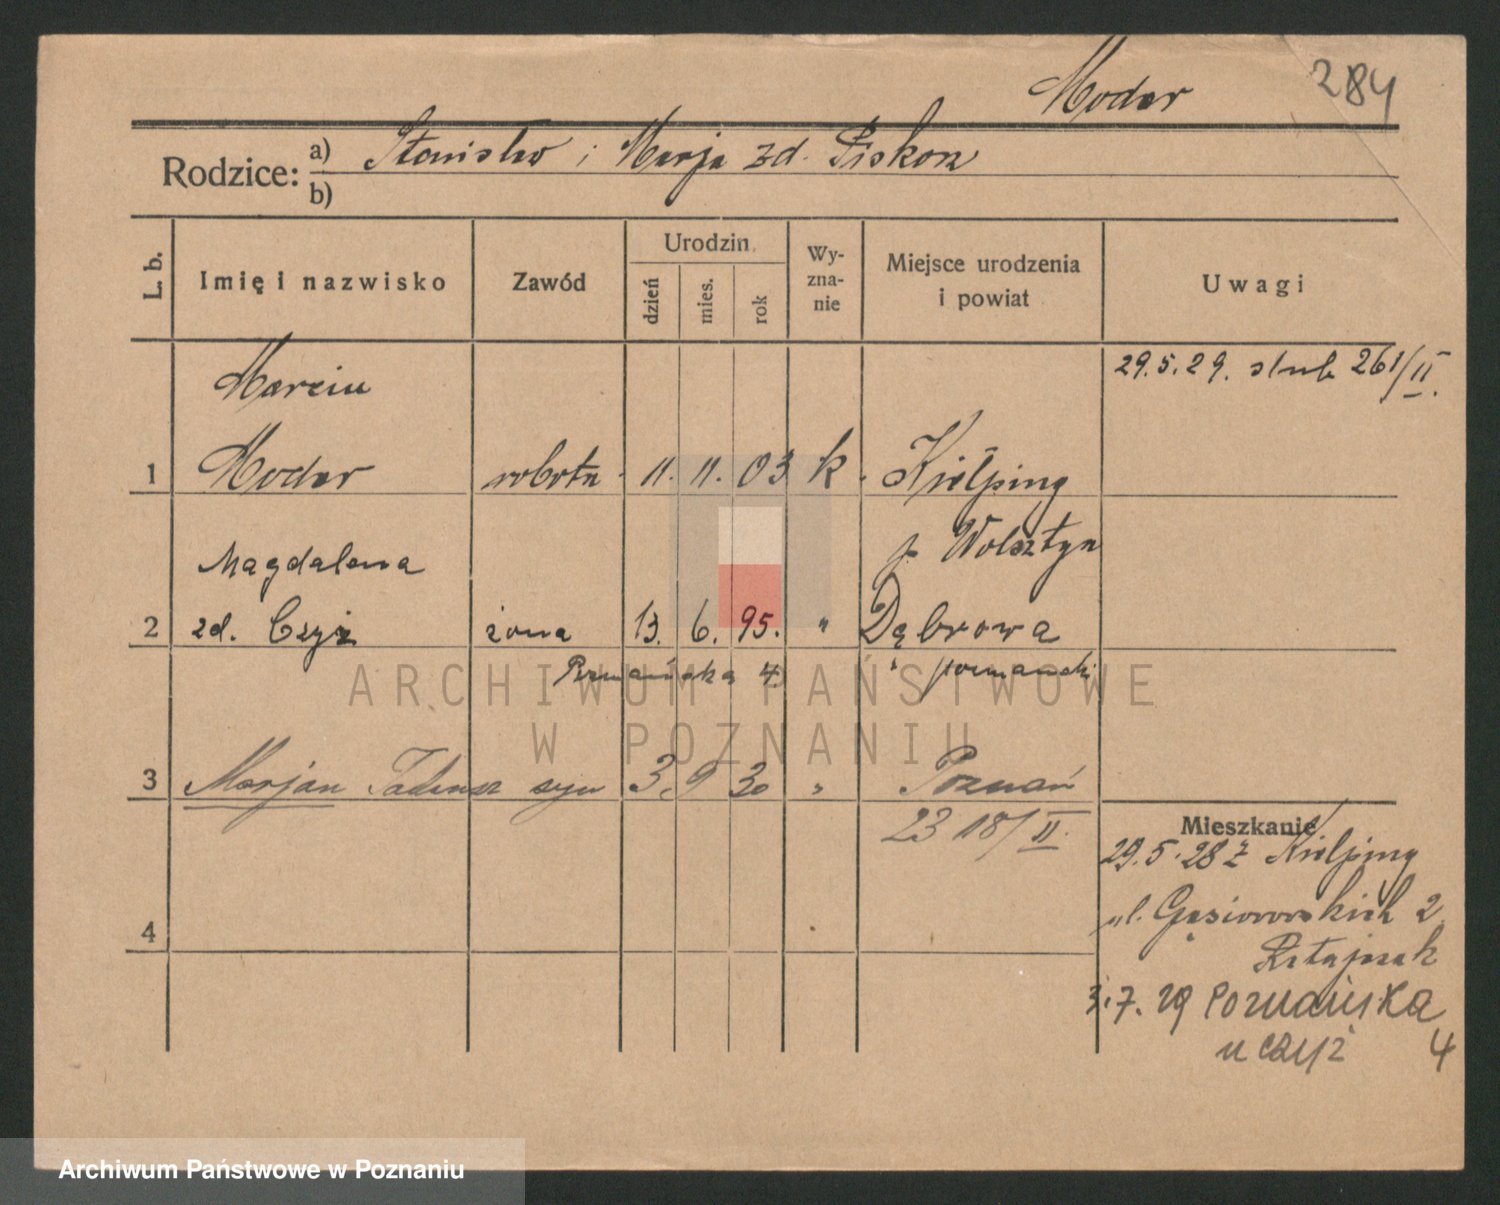 Moder
284
Rodzice: a) Stanisław i Marja zd. Piskorz
b)
L. b. Imię i nazwisko Zawód Urodzin dzień mies. rok Wy-zna-nie Miejsce urodzenia i powiat Uwagi
29.5.29. ślub 261/II.
Marcin
1 Moder robotn. 11. 11. 03 k. Kiełpiny
p. Wolsztyn
Magdalena
2 zd. Czyż żona 13. 6. 95. " Dąbrowa
Poznańska 4 " poznański
3 Marjan Tadeusz syn 3. 9 30 " Poznań
2318/II.
Mieszkanie
29.5.28 z Kiełpiny
4 ul. Gąsiorowskich 2
Ratajczak
3.7.29 Poznańska
u Czyż 4
ARCHIWUM PAŃSTWOWE
W POZNANIU
Archiwum Państwowe w Poznaniu